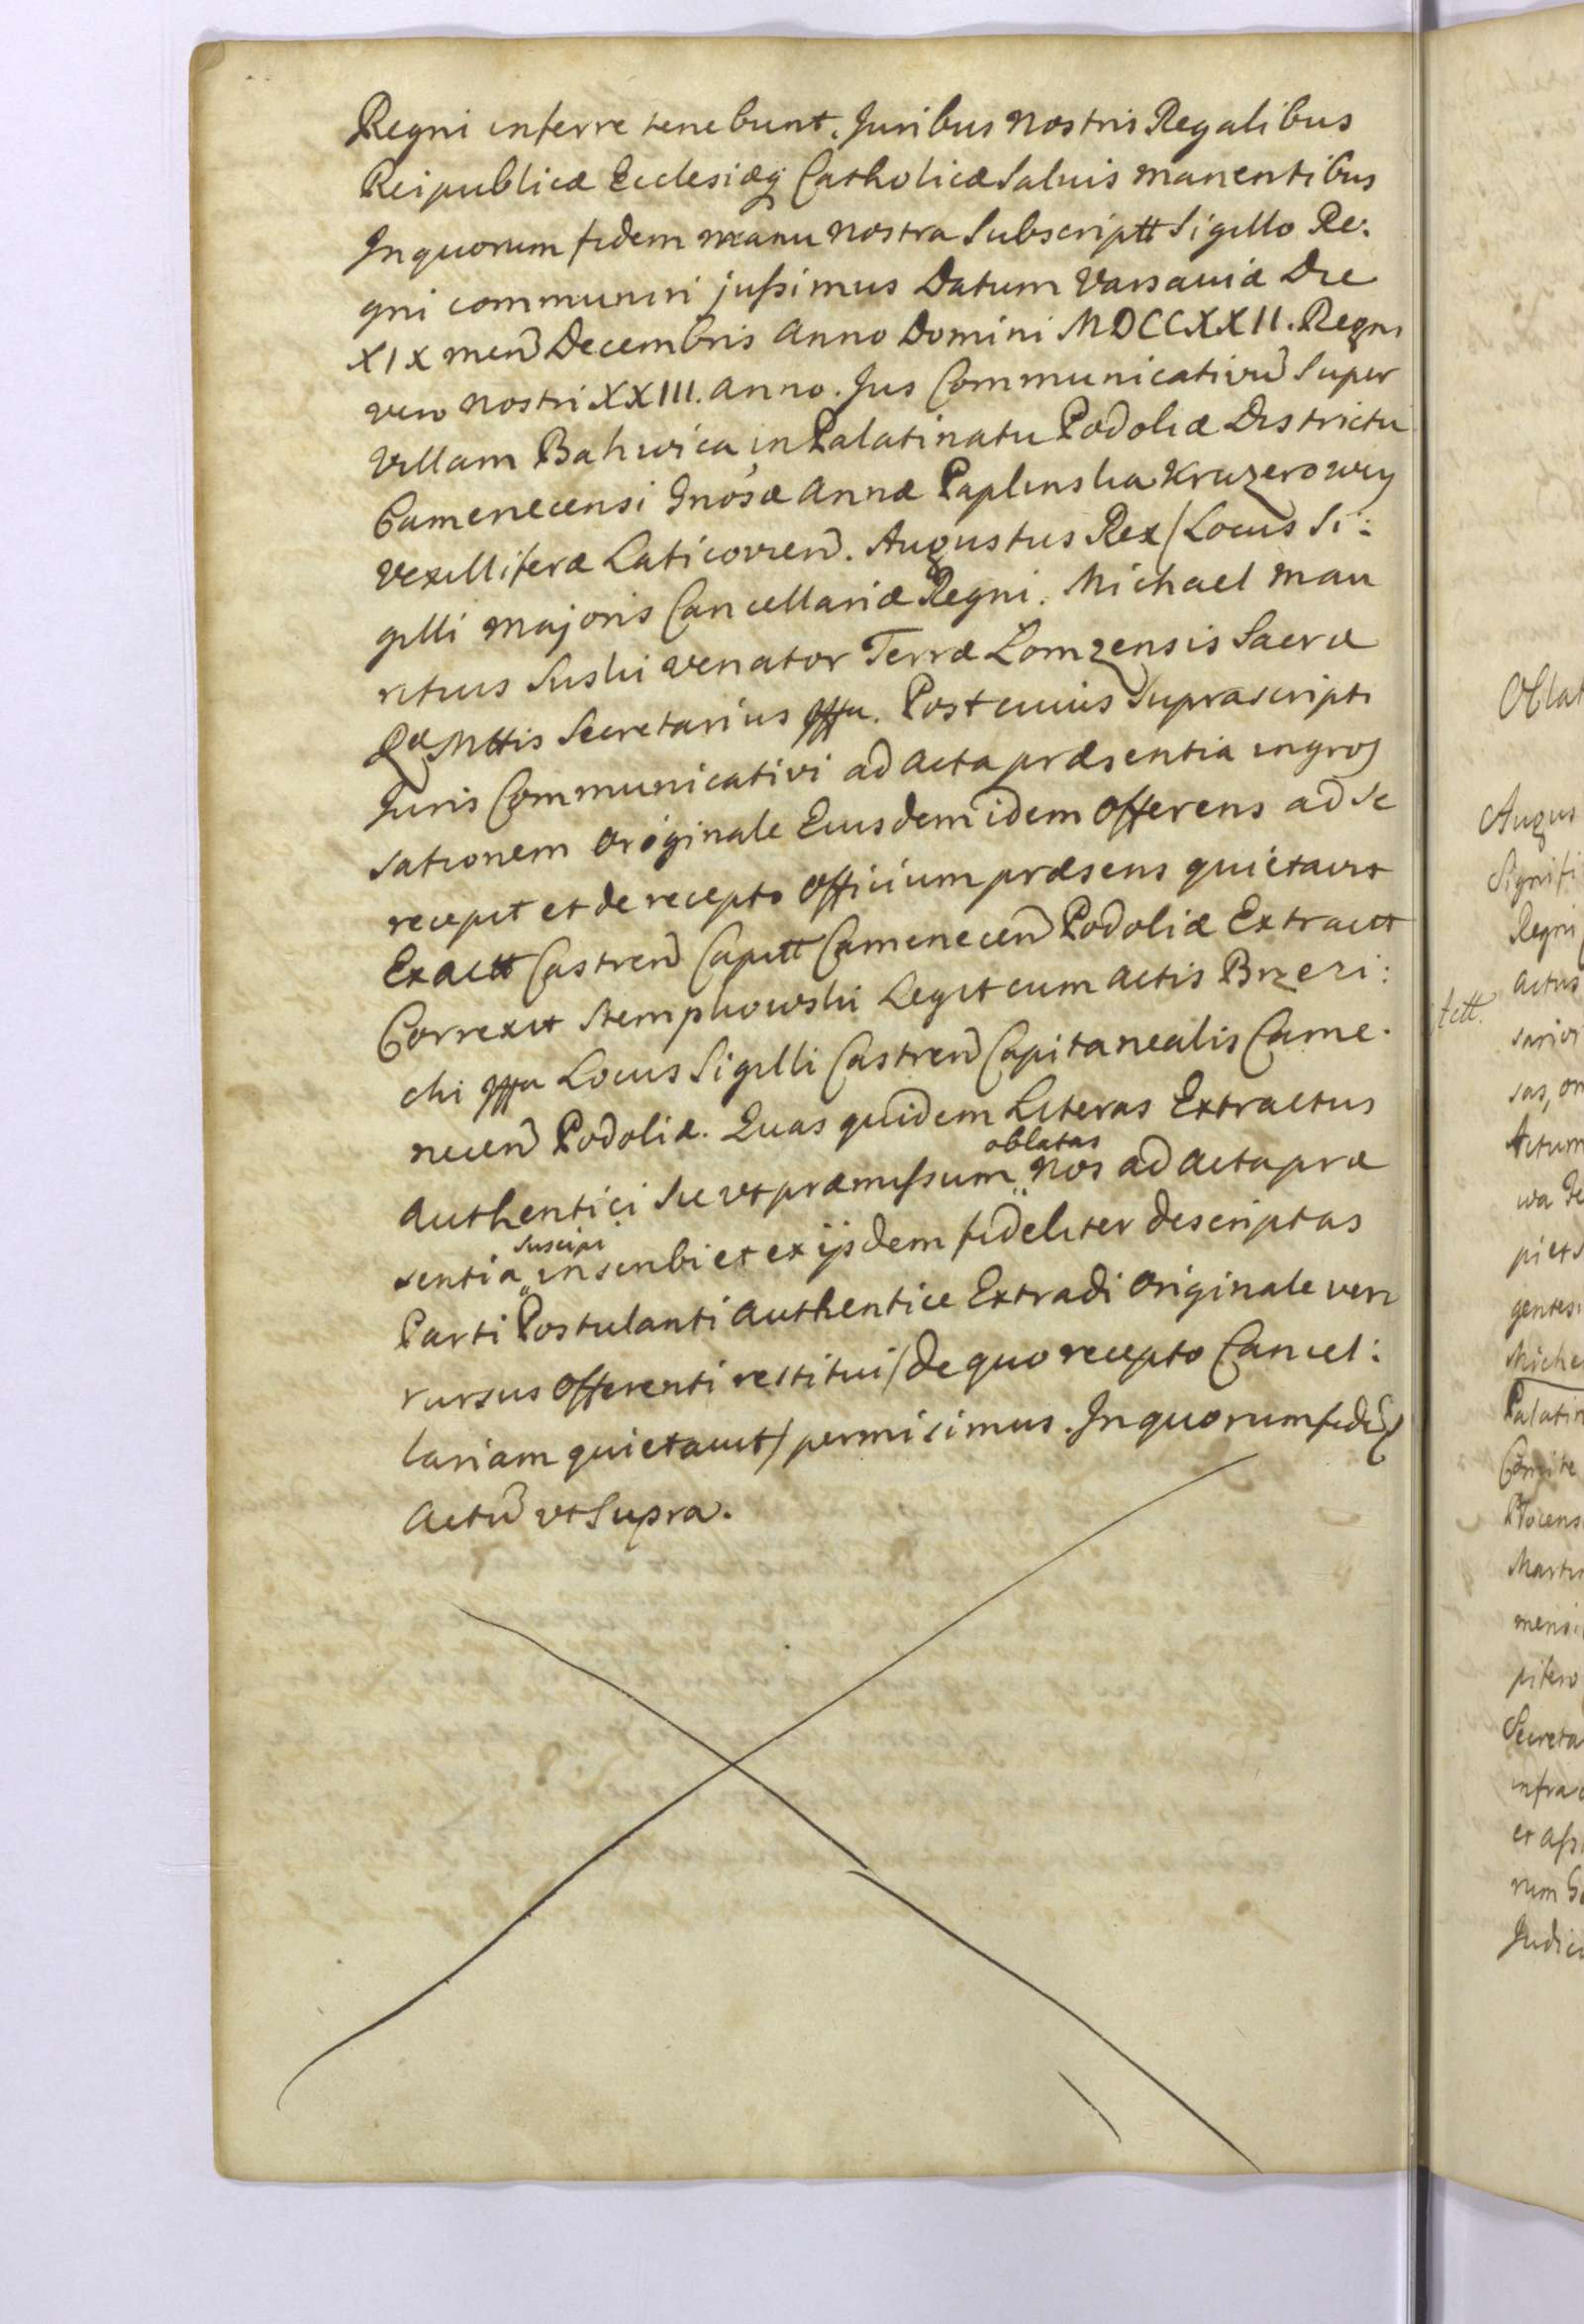 Regni inferre tenebunt. Juribus nostris Regalibus
Reipublicæ Ecclesiæq Catholicæ Salvis manentibus
In quorum fidem manu nostra Subscriptt Sigillo Re:
gni communiri jussimus Datum Varsaviæ Die
XIX men Decembris Anno Domini MDCCXXII. Regni
vero nostri XXIII. anno. Jus Communicativū Super
villam Bakwica in Palatinatu Podoliæ Districtu
Camenecensi Gnosæ Annæ Paplinska Kruzerowey
Vexilliferæ Laticovien. Augustus Rex / Locus Si:
gilli majoris Cancellariæ Regni. Michael Mau
ritius Suski Venator Terræ Lomzensis Sacræ
Ræ Mttis Secretarius mppa. Post cuius Suprascripti
Juris Communicativi ad acta præsentia ingros
sationem Originale Eiusdem idem Offerens ad se
recepit et de recepto Officium præsens quietavit
Ex actt Castren Capitt Camenecen Podoliæ Extractt
Correxit Stempkowski Legit cum actis Brzezi:
cki mppa Locus Sigilli Castren Capitanealis Came:
necen Podoliæ. Quas quidem Literas Extractus
Authentici Sic ut præmissum oblatas Nos ad acta præ
sentia suscipi inscribi et ex ijsdem fideliter descriptas
Parti Postulanti Authentice Extradi Originale vero
rursus Offerenti restitui / de quo recepto Cancel:
lariam quietavit / permisimus. In quorum fidē
Actū ut Supra.
Oblat
Augus
Signifi
Regni
actus
tett.
sarior
sas, om
Actum
wa De
piets
gentes
Miche
Palatin
Comite
Plocens
Martii
mensi
pitero
Secreta
infra
et ass
rum
Judici